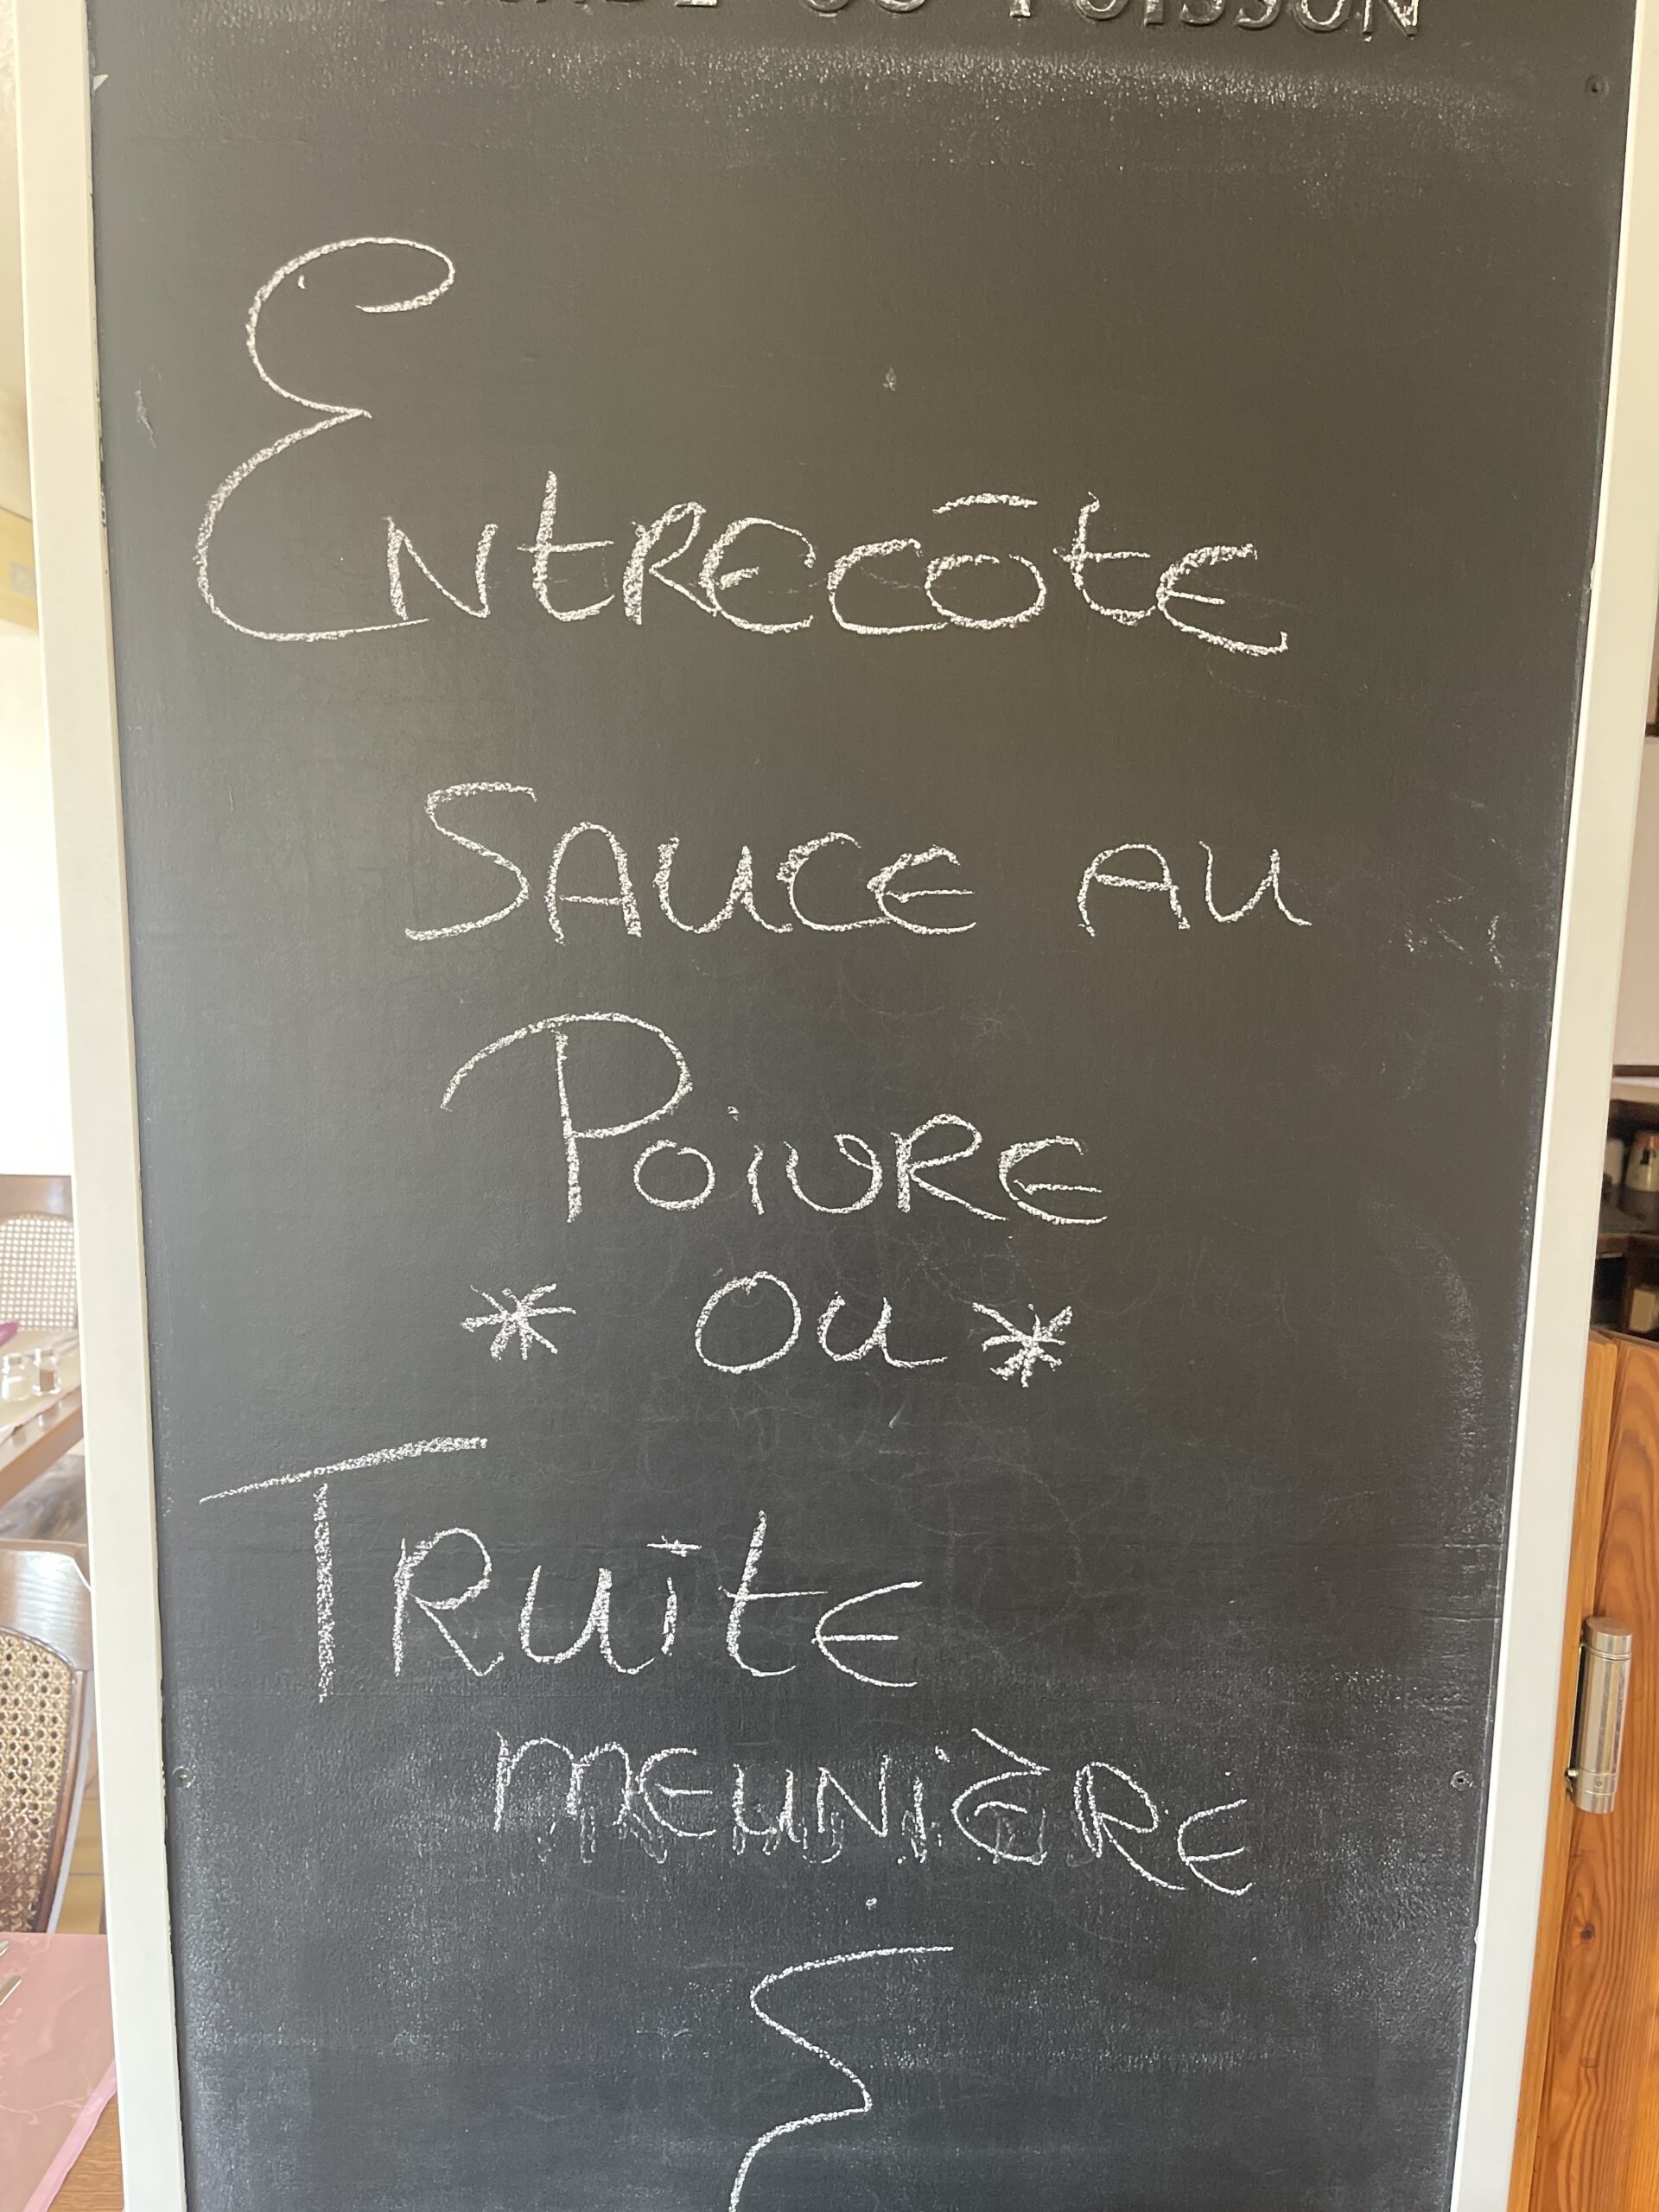 OU POISSON
Entrecôte
Sauce au
Poivre
* ou *
Truite
meunière